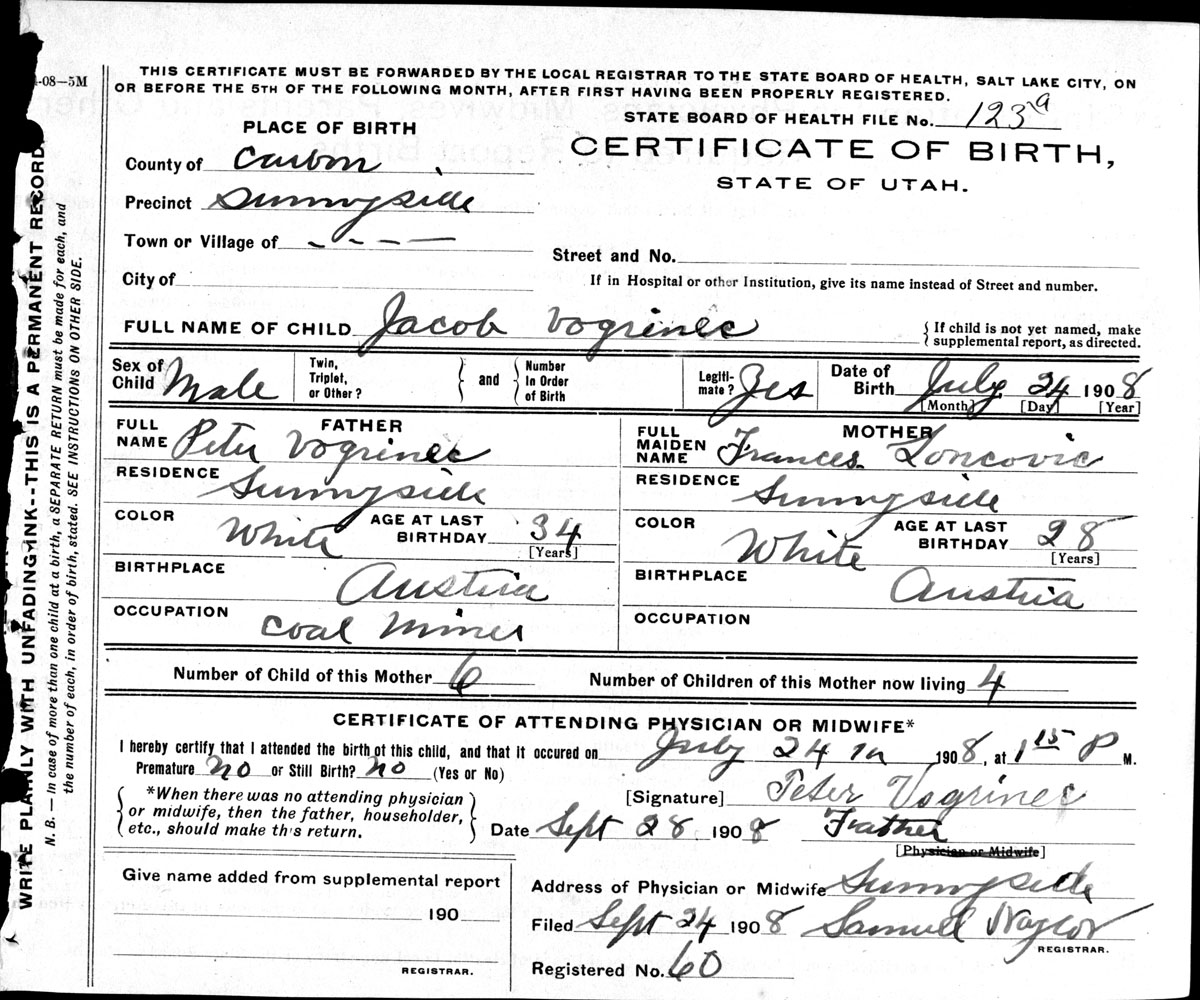 -08—5M
THIS CERTIFICATE MUST BE FORWARDED BY THE LOCAL REGISTRAR TO THE STATE BOARD OF HEALTH, SALT LAKE CITY, ON
OR BEFORE THE 5TH OF THE FOLLOWING MONTH, AFTER FIRST HAVING BEEN PROPERLY REGISTERED.
STATE BOARD OF HEALTH FILE No. 123a
CERTIFICATE OF BIRTH,
STATE OF UTAH.
PLACE OF BIRTH
County of Carbon
Precinct Sunnyside
Town or Village of - - - -
City of
Street and No.
If in Hospital or other Institution, give its name instead of Street and number.
FULL NAME OF CHILD Jacob Vogrinec
{ If child is not yet named, make
supplemental report, as directed.
Sex of Child Male
Twin, Triplet, or Other?
} and {
Number In Order of Birth
Legiti-mate? Yes
Date of Birth July 24 1908
[Month] [Day] [Year]
FATHER
FULL NAME Peter Vogrinec
RESIDENCE Sunnyside
COLOR White
AGE AT LAST BIRTHDAY 34
[Years]
BIRTHPLACE Austria
OCCUPATION Coal Miner
MOTHER
FULL MAIDEN NAME Frances Loncovic
RESIDENCE Sunnyside
COLOR White
AGE AT LAST BIRTHDAY 28
[Years]
BIRTHPLACE Austria
OCCUPATION
Number of Child of this Mother 6
Number of Children of this Mother now living 4
CERTIFICATE OF ATTENDING PHYSICIAN OR MIDWIFE*
I hereby certify that I attended the birth of this child, and that it occured on July 24 1908, at 1 15 P M.
Premature no or Still Birth? no (Yes or No)
{ *When there was no attending physician
or midwife, then the father, householder,
etc., should make th's return. }
[Signature] Peter Vogrinec
Date Sept 28 1908 Father
[Physician or Midwife]
Give name added from supplemental report
190
REGISTRAR.
Address of Physician or Midwife Sunnyside
Filed Sept 24 1908 Samuel Naylor
REGISTRAR.
Registered No. 60
WRITE PLAINLY WITH UNFADING INK--THIS IS A PERMANENT RECORD.
N. B. — In case of more than one child at a birth, a SEPARATE RETURN must be made for each, and
the number of each, in order of birth, stated. SEE INSTRUCTIONS ON OTHER SIDE.